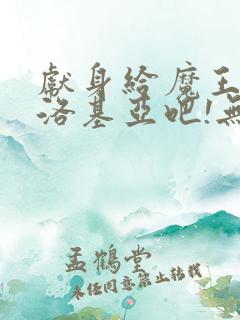 獻身給魔王
洛基亞吧!無
孟鶴堂
未經同意禁止轉載